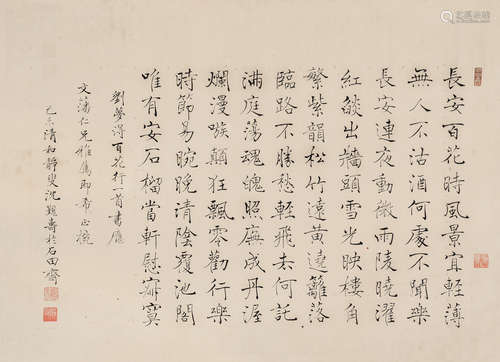 長安百花時風景宜輕薄
無人不沽酒何處不聞樂
長安連夜動微雨陵曉濯
紅燄出牆頭雪光映樓角
繁紫韻松竹遠黃遶籬落
臨路不勝愁輕飛去何託
滿庭蕩魂魄照廡成丹渥
爛漫嗾顛狂飄零勸行樂
時節易晼晚清陰覆池閣
唯有安石榴當軒慰寂寞
劉夢得百花行一首書應
文藩仁兄雅屬即希正捥
乙未清和靜叟沈覲壽於石田齋